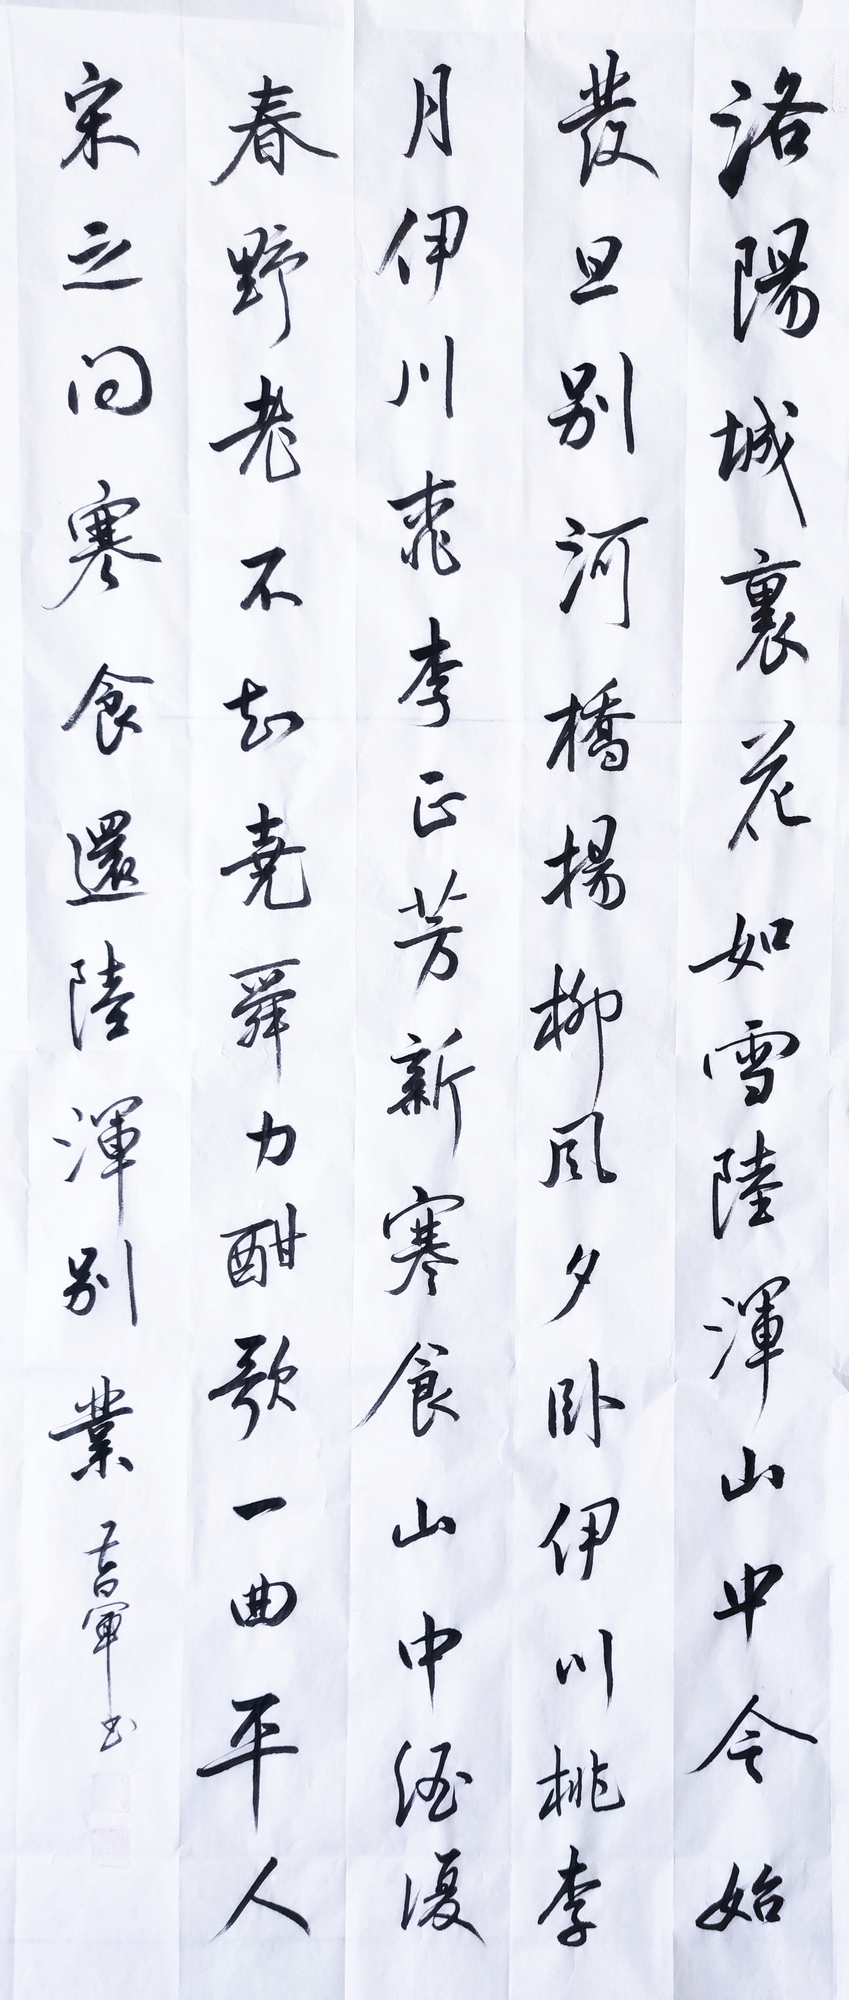 洛陽城裏花如雪陸渾山中今始
發旦別河橋揚柳風夕卧伊川桃李
月伊川桃李正芳新寒食山中酒復
春野老不知堯舜力酣歌一曲平人
宋之问寒食還陸渾別業
軍书